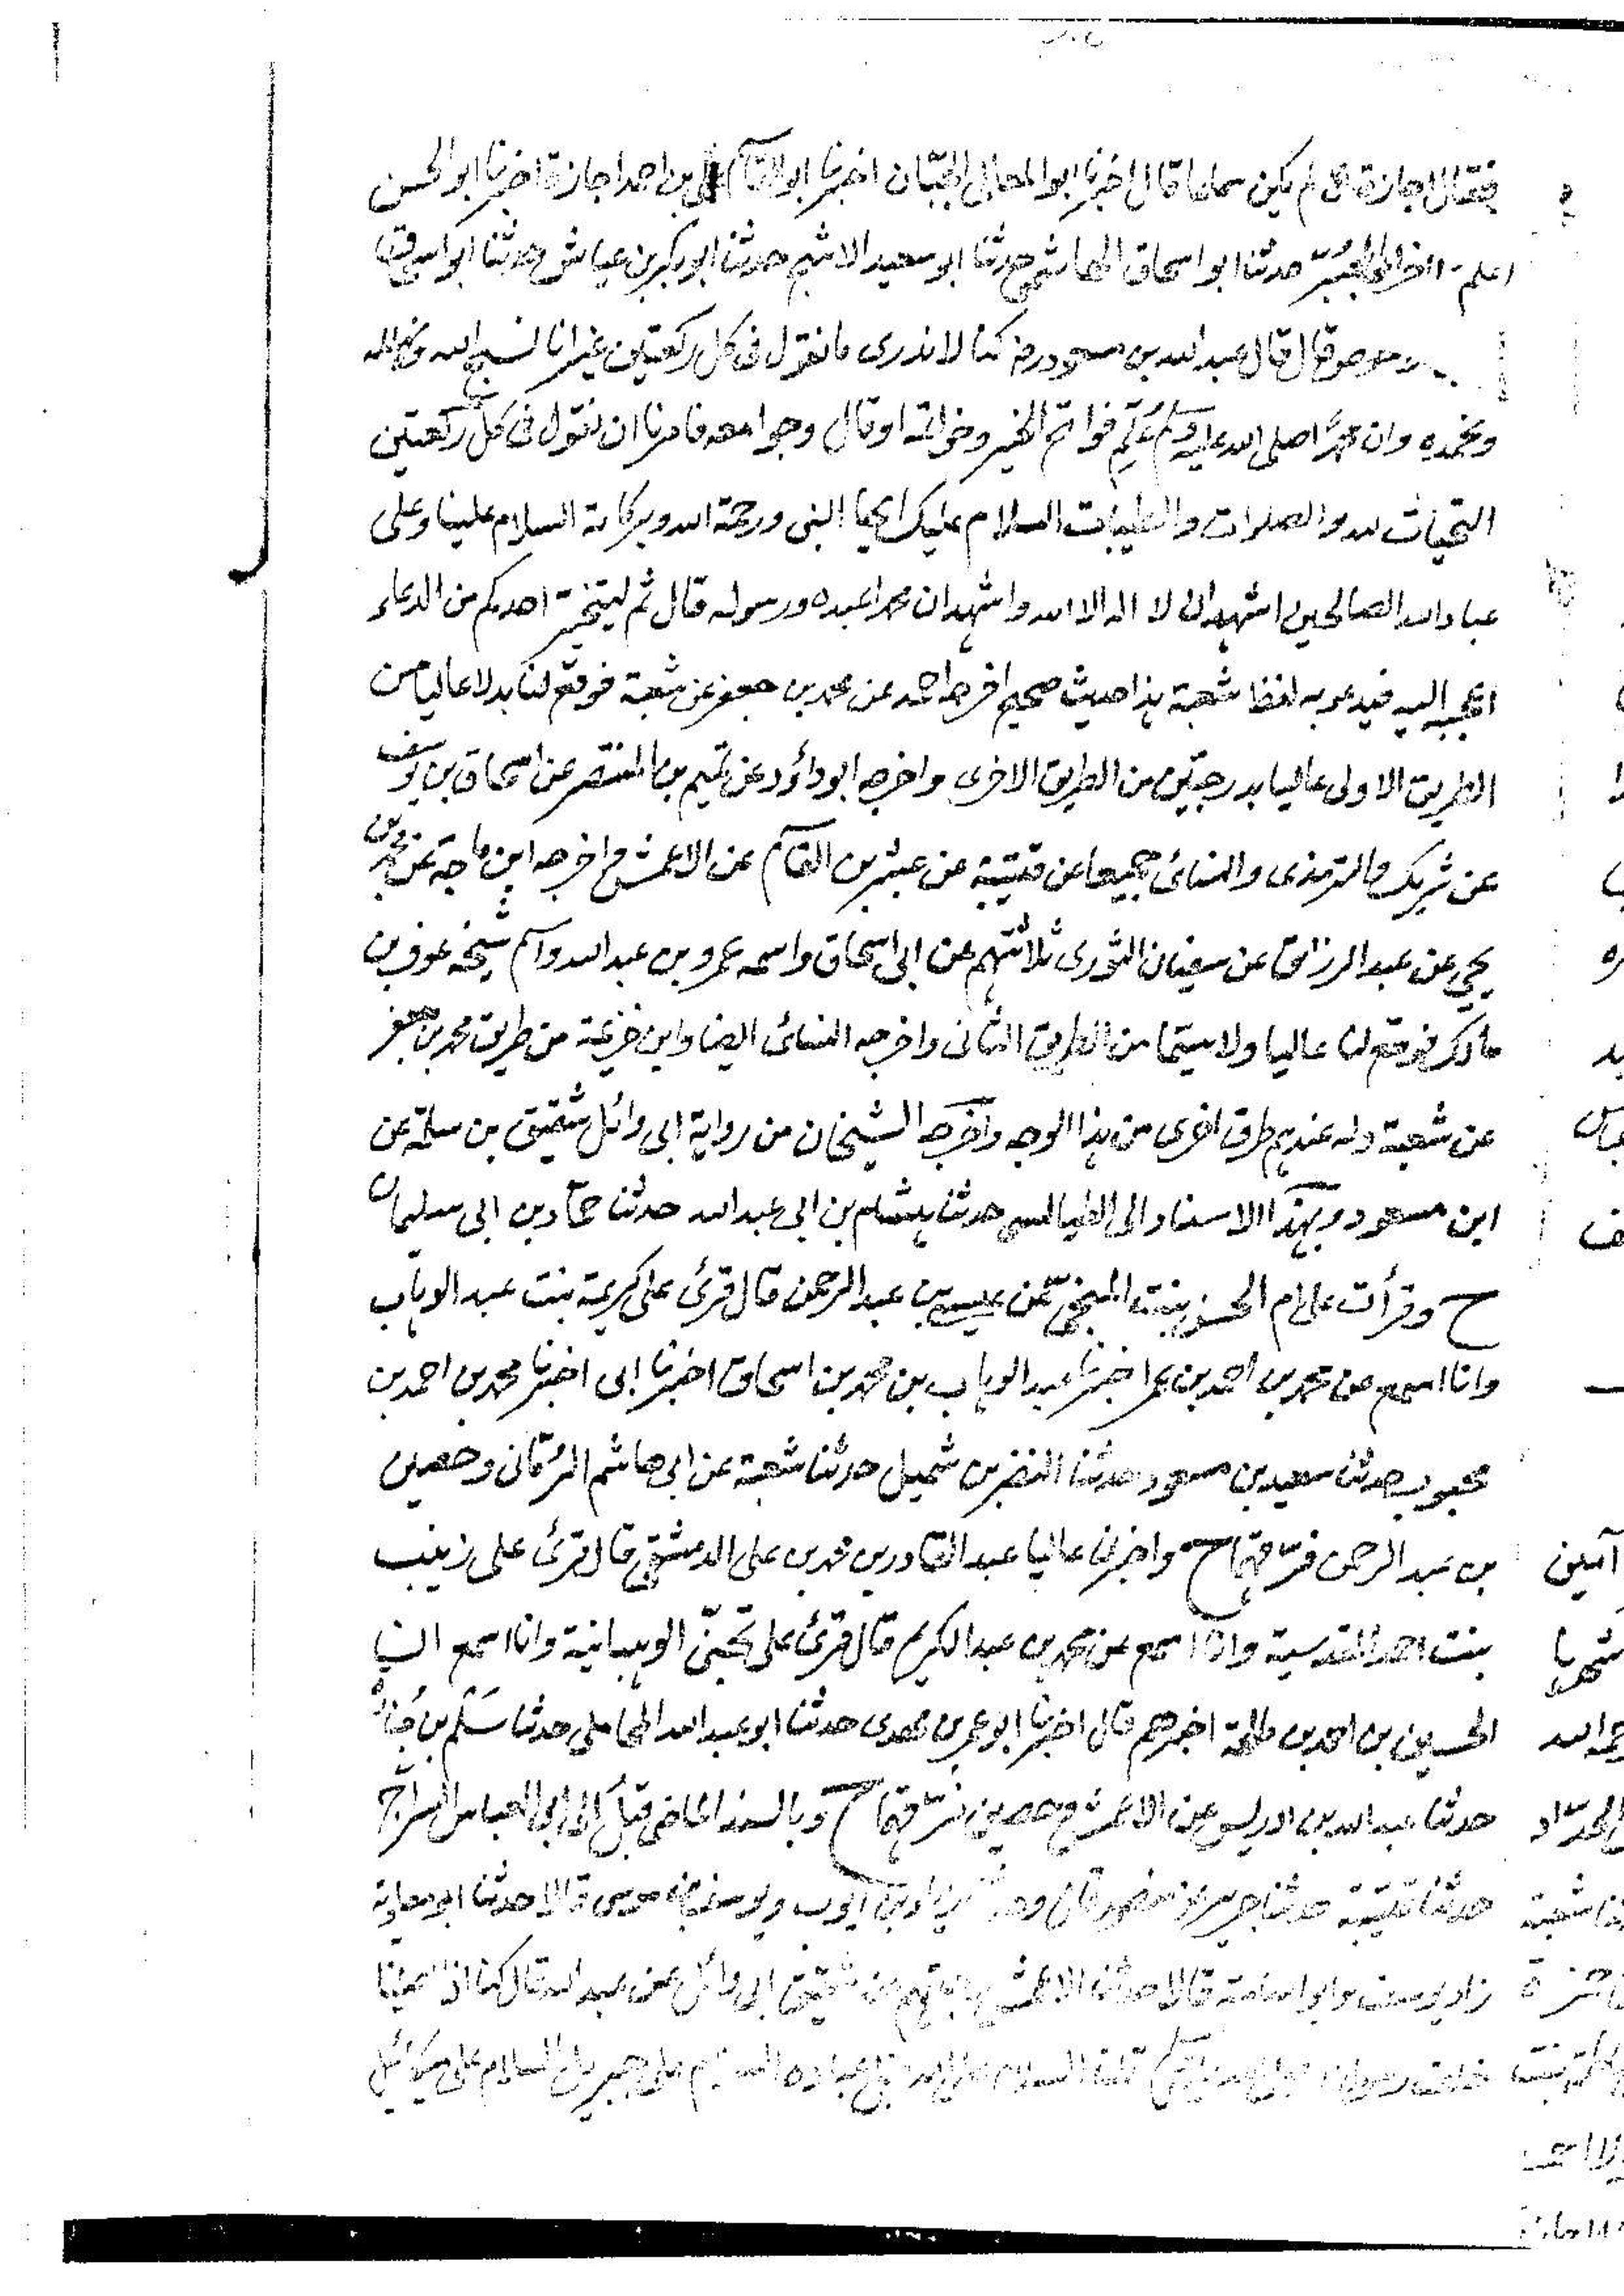 فقال اجازة ان لم يكن سماعا قال اخبرنا ابو المعالى الجبّان اخبرنا ابو القاسم على بن احمد اجازة اخبرنا ابو الحسن
حدثنا ابو اسحاق الهاشمى حدثنا ابو سعيد الاشج حدثنا ابو بكر بن عياش حدثنا ابو اسحاق
قال قال عبد الله بن مسعود رضـ كنا لا ندرى ما نقول فى كل ركعتين غير انا نسبح الله ونكبر الله
ونحمده وان محمدًا صلى الله عليه وسلم عُلّم فواتح الخير وخواتمه او قال وجوامعه فامرنا ان نقول فى كل ركعتين
التحيات لله والصلوات والطيبات السلام عليك ايها النبى ورحمة الله وبركاته السلام علينا وعلى
عباد الله الصالحين اشهد ان لا اله الا الله واشهد ان محمدا عبده ورسوله قال ثم ليتخيّر احدكم من الدعاء
اعجبه اليه فيدعو به لفظ شعبة هذا حديث صحيح اخرجه احمد عن محمد بن جعفر عن شعبة فوقع لنا بدلا عاليا من
الطريق الاولى عاليا بدرجتين من الطريق الاخرى واخرجه ابو داؤد عن تميم بن المنتصر عن اسحاق بن يوسف
عن شريك والترمذى والنسائى جميعا عن قتيبة عن عبثر بن القاسم عن الاعمش واخرجه ابن ماجة عن محمد بن
يحيى عن عبد الرزاق عن سفيان الثورى ثلاثتهم عن ابى اسحاق واسمه عمرو بن عبد الله واسم شيخه عوف بن
مالك فوقع لنا عاليا ولا سيّما من الطريق الثانى واخرجه النسائى ايضا وابن خزيمة من طريق محمد بن جعفر
عن شعبة وله عندهم طرق اخرى من هذا الوجه واخرجه الشيخان من رواية ابى وائل شقيق بن سلمة عن
ابن مسعود وبهذا الاسناد الى الطيالسى حدثنا هشام بن ابى عبد الله حدثنا حمّاد بن ابى سليمان
ح وقرأت على ام الحسن بنت المنجّى عن عيسى بن عبد الرحمن قال قرئ على كريمة بنت عبد الوهاب
وانا اسمع عن محمد بن احمد بن عمر اخبرنا عبد الوهاب بن محمد بن اسحاق اخبرنا ابى اخبرنا محمد بن احمد بن
محبوب حدثنا سعيد بن مسعود حدثنا النضر بن شميل حدثنا شعبة عن ابى هاشم الرمّانى وحصين
بن عبد الرحمن فرّقهما ح واخبرنا عاليا عبد القادر بن محمد بن على الدمشقى قال قرئ على زينب
بنت احمد المقدسية وانا اسمع عن محمد بن عبد الكريم قال قرئ على تجنّى الوهبانية وانا اسمع ان
الحسين بن احمد بن طلحة اخبرهم قال اخبرنا ابو عمر بن مهدى حدثنا ابو عبد الله المحاملى حدثنا سَلْم بن جُنادة
حدثنا عبد الله بن ادريس عن الاعمش وحصين فرّقهما ح وبالسند الماضى قبلُ الى ابى العباس السرّاج
حدثنا قتيبة حدثنا جرير عن منصور قال وحدثنا زياد بن ايوب ويوسف بن موسى قالا حدثنا ابو معاوية
زاد يوسف وابو اسامة قالا حدثنا الاعمش عن شقيق ابى وائل عن عبد الله قال كنا اذا صلينا
خلف رسول الله صلى الله عليه وسلم قلنا السلام على الله قبل عباده السلام على جبريل السلام على ميكائيل
آمين
شعبة
بنت